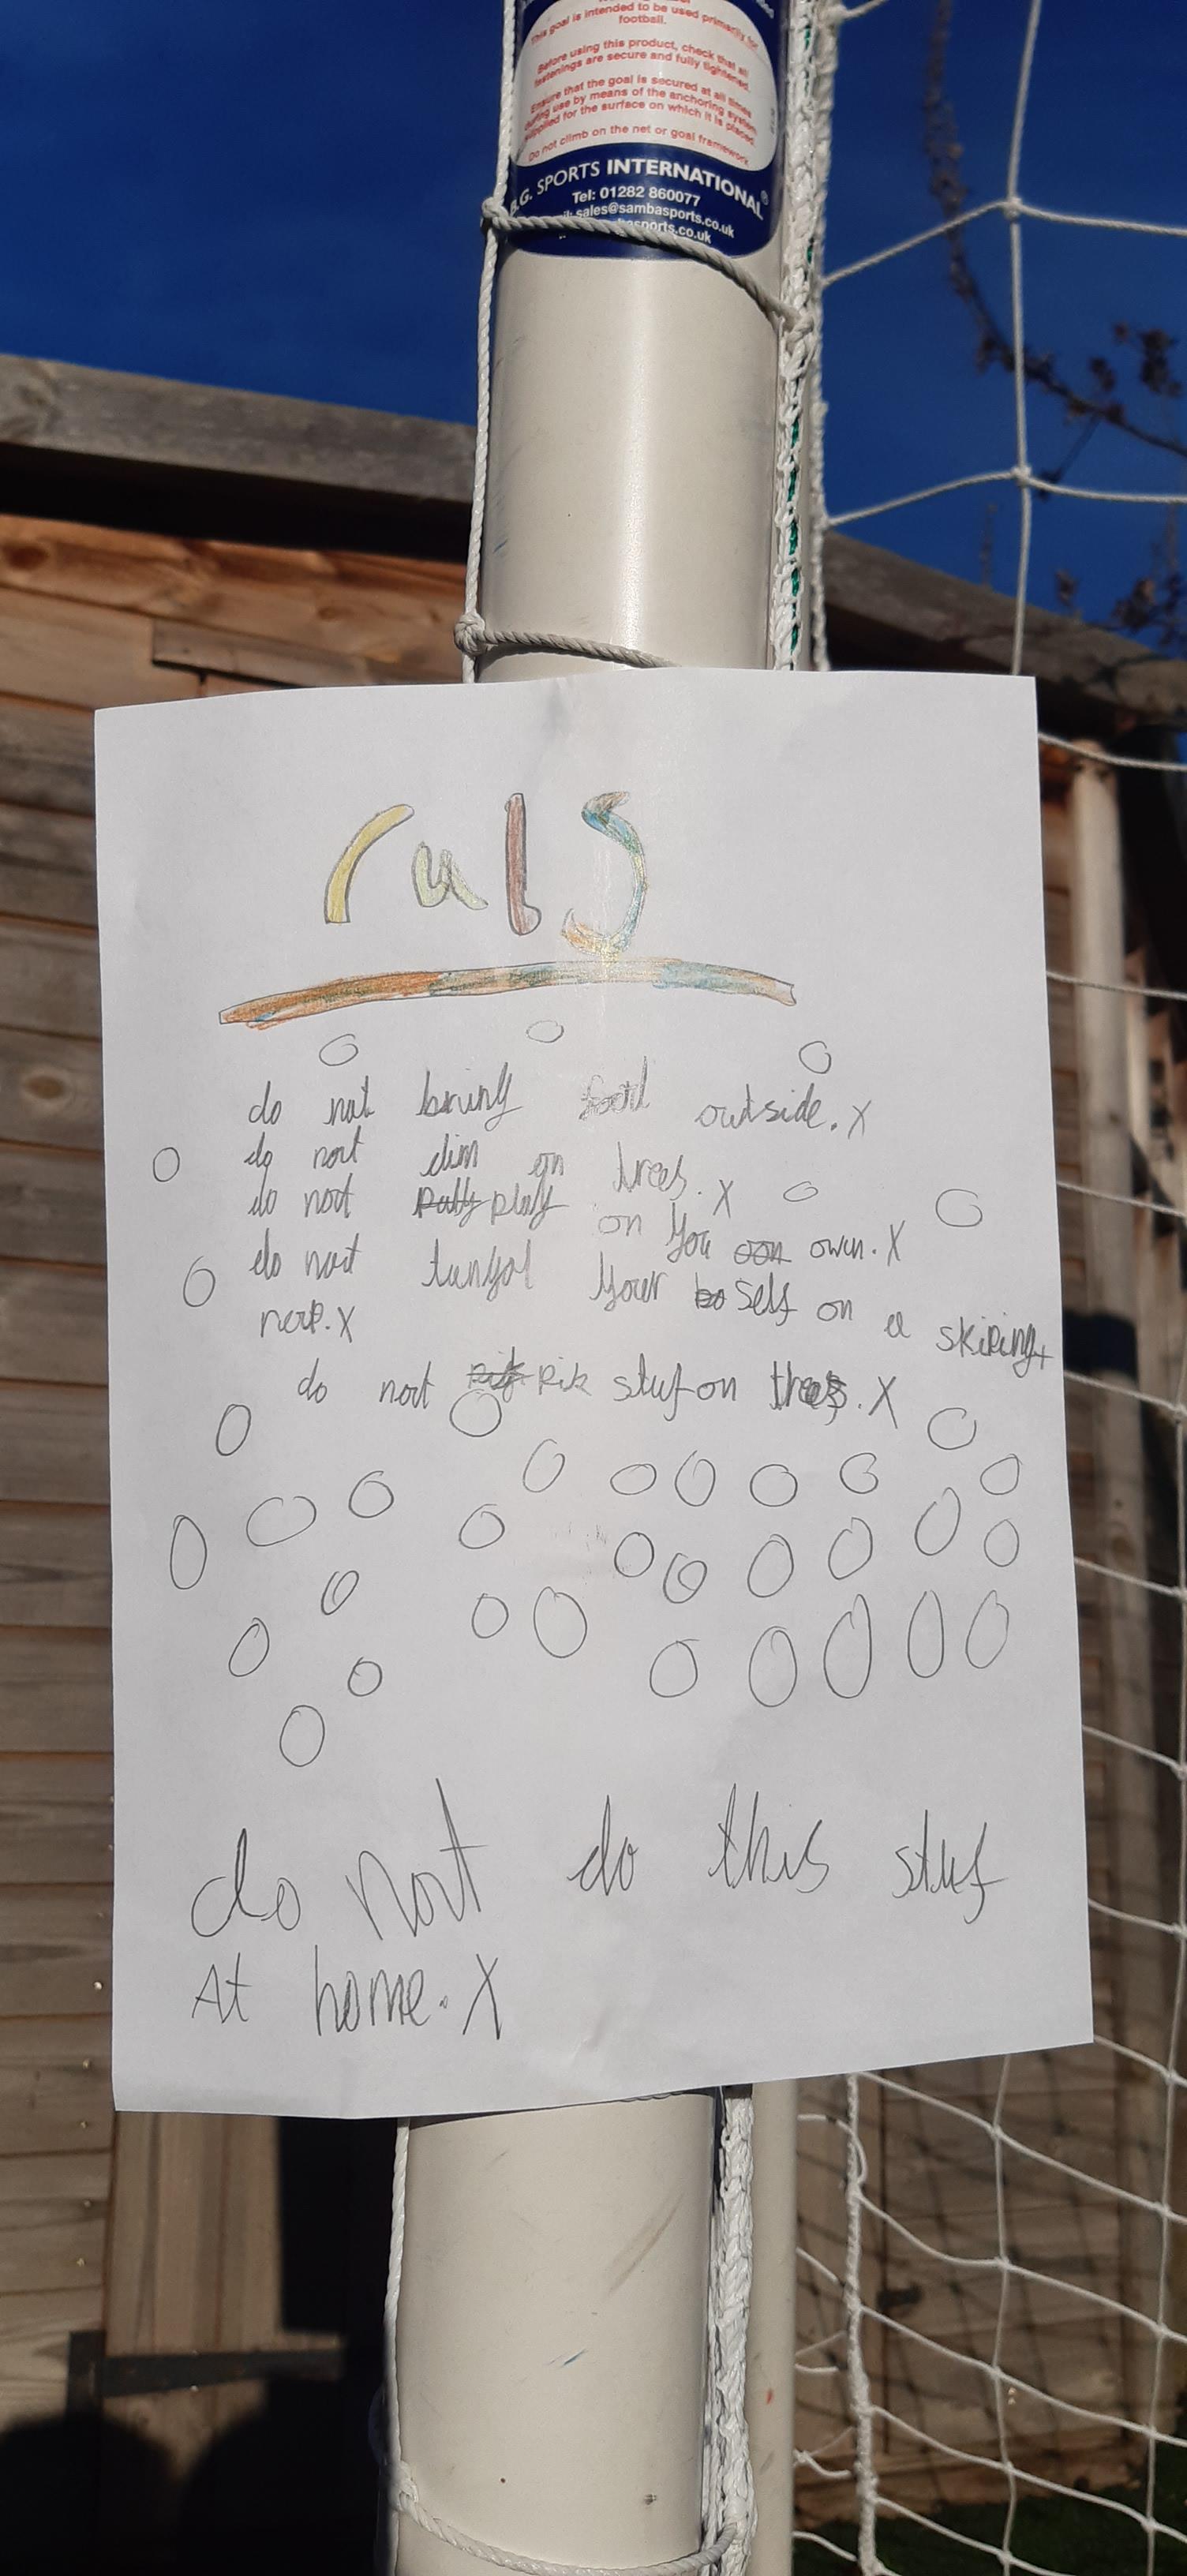 This goal is intended to be used primarily for
football.
Before using this product, check that all
fastenings are secure and fully tightened.
Ensure that the goal is secured at all times
during use by means of the anchoring system
supplied for the surface on which it is placed.
Do not climb on the net or goal framework
R.G. SPORTS INTERNATIONAL®
Tel: 01282 860077
sales@sambasports.co.uk
sports.co.uk
ruls
do not bring food outside. X
do nort clim on trees. X
do nort play on you own. X
do nort tungol your self on a skiping
rop. X
do nort pik stuf on trees. X
do nort do this stuf
At home. X